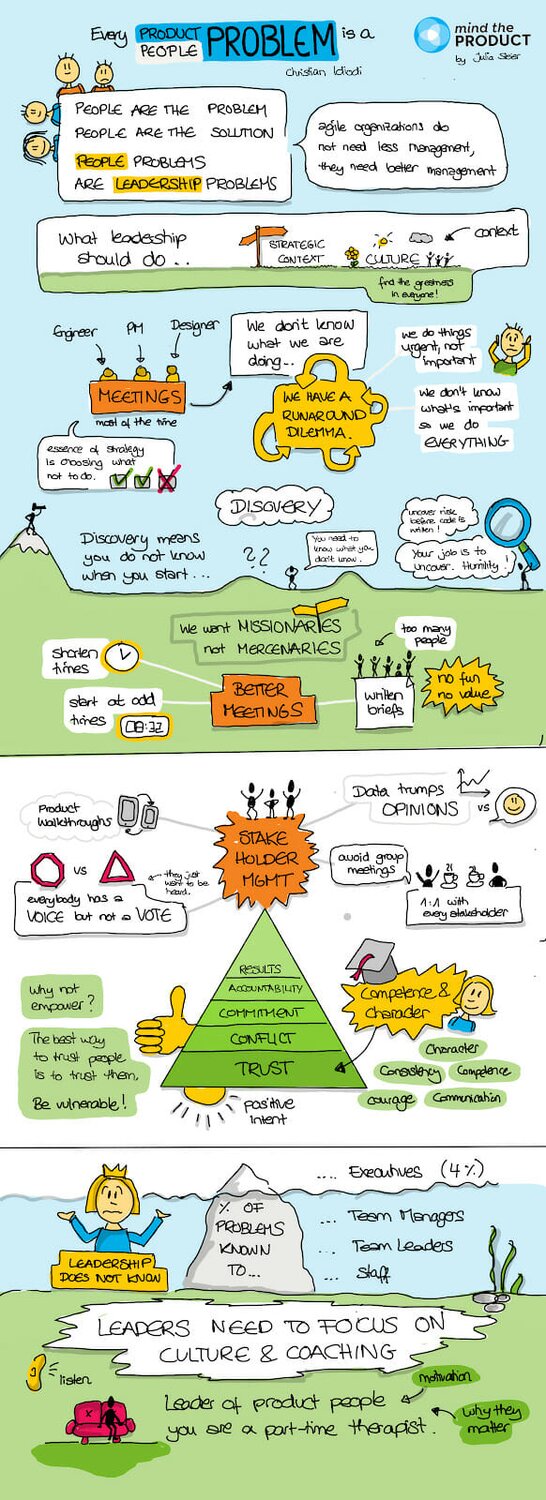 Every PRODUCT PROBLEM is a
PEOPLE
Christian Idiodi
mind the
PRODUCT
by Julia Steier
PEOPLE ARE THE PROBLEM
PEOPLE ARE THE SOLUTION
PEOPLE PROBLEMS
ARE LEADERSHIP PROBLEMS
agile organizations do
not need less management,
they need better management
What leadership
should do...
STRATEGIC
CONTEXT
CULTURE
context
find the greatness
in everyone!
Engineer
PM
Designer
MEETINGS
most of the time
We don't know
what we are
doing...
WE HAVE A
RUNAROUND
DILEMMA.
we do things
urgent, not
important
We don't know
what's important
so we do
EVERYTHING
essence of strategy
is choosing what
not to do.
DISCOVERY
Discovery means
you do not know
when you start...
??
You need to
know what you
don't know.
uncover risk
before code is
written!
Your job is to
uncover. Humility!
We want MISSIONARIES
not MERCENARIES
shorten
times
start at odd
times
BETTER
MEETINGS
too many
people
written
briefs
no fun
no value
Product
Walkthroughs
STAKE
HOLDER
MGMT
Data trumps
OPINIONS
vs
vs
they just
want to be
heard.
everybody has a
VOICE but not a VOTE
avoid group
meetings
1:1 with
every stakeholder
RESULTS
ACCOUNTABILITY
COMMITMENT
CONFLICT
TRUST
Why not
empower?
The best way
to trust people
is to trust them.
Be vulnerable!
positive
intent
Competence &
Character
Character
Consistency
Competence
courage
Communication
LEADERSHIP
DOES NOT KNOW
% OF
PROBLEMS
KNOWN
TO...
.... Executives (4%)
... Team Managers
... Team Leaders
... Staff
LEADERS NEED TO FOCUS ON
CULTURE & COACHING
listen
Leader of product people
you are a part-time therapist.
motivation
why they
matter